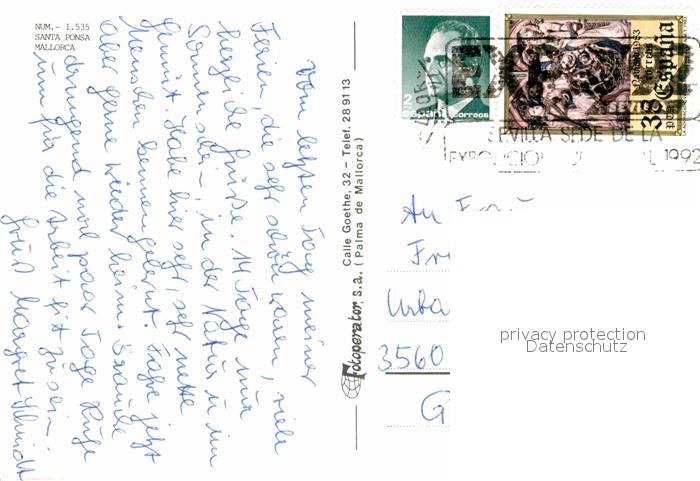 NUM.- 1.535
SANTA PONSA
MALLORCA
Vom letzten Tag meiner
Ferien, die sehr schön waren, viele
herzliche Grüße. 14 Tage nur
Sonnenschein, in der Natur u. im
Habe hier sehr, sehr nette
Menschen kennengelernt. Fahre jetzt
aber gerne wieder heim. Brauche
dringend noch paar Tage Ruhe
um für die Arbeit fit zu sein.
Gruß Margret Schmidt
Fotoperator, s.a.
Calle Goethe, 32 - Telef. 28 91 13
(Palma de Mallorca)
2
España correos
Navidad 1983
correos
España
38
PTA
SEVILLA SEDE DE LA
1992
An
Fr
Urba
3560
G
privacy protection
Datenschutz